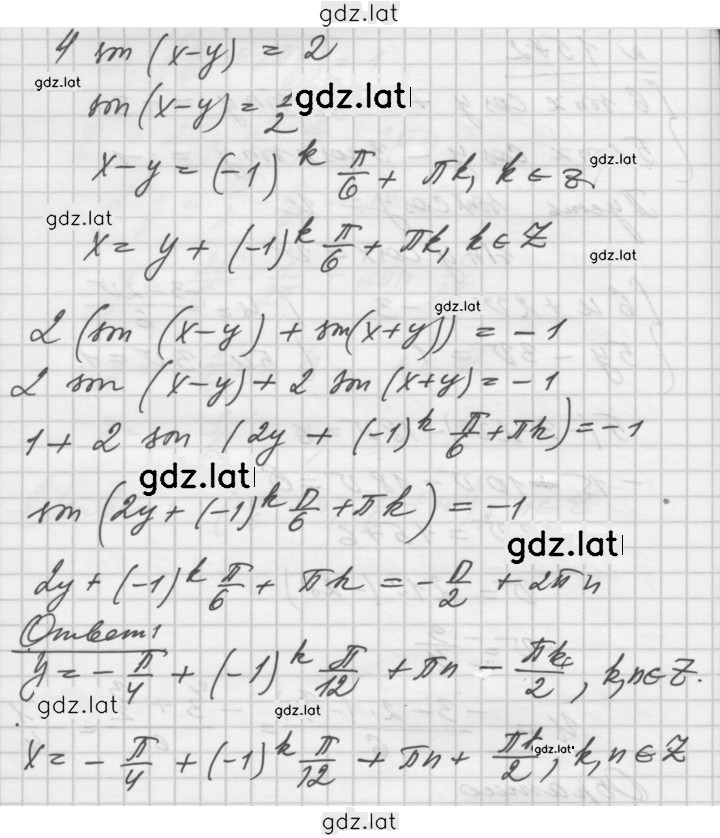 gdz.lat
4 sin (x-y) = 2
gdz.lat
sin (x-y) = 1/2 gdz.lat
x-y = (-1)^k π/6 + πk, k ∈ Z
gdz.lat
gdz.lat
x = y + (-1)^k π/6 + πk, k ∈ Z
gdz.lat
gdz.lat
2 (sin (x-y) + sin(x+y)) = -1
2 sin (x-y) + 2 sin (x+y) = -1
1 + 2 sin (2y + (-1)^k π/6 + πk) = -1
gdz.lat
sin (2y + (-1)^k π/6 + πk) = -1
gdz.lat
2y + (-1)^k π/6 + πk = - π/2 + 2πn
Ответ:
y = - π/4 + (-1)^k π/12 + πn - πk/2, k,n ∈ Z.
gdz.lat gdz.lat
x = - π/4 + (-1)^k π/12 + πn + πk/2, k,n ∈ Z
gdz.lat
gdz.lat